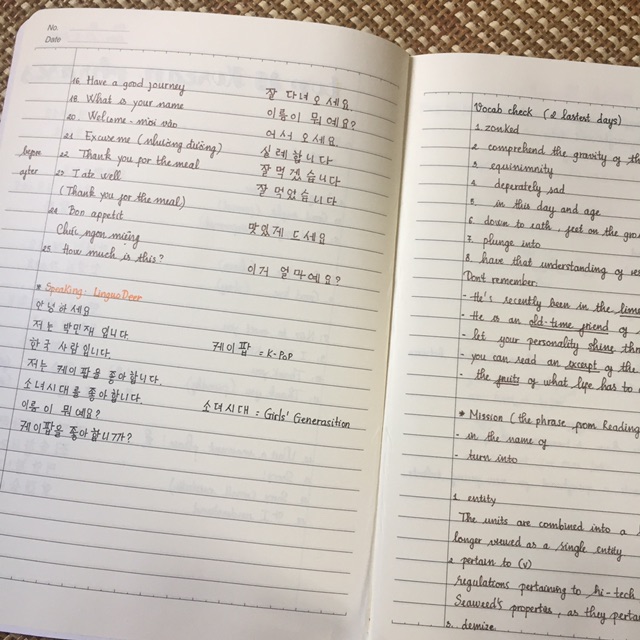 No.
Date
16. Have a good journey 잘 다녀오세요.
18. What is your name 이름이 뭐예요?
20. Welcome - mời vào 어서오세요.
21. Excuse me (nhường đường) 실례합니다
22. Thank you for the meal 잘먹겠습니다
after 23. I ate well 잘먹었습니다
(Thank you for the meal)
24. Bon appetit 맛있게 드세요
Chúc ngon miệng
25. How much is this? 이거 얼마예요?
* Speaking: LingoDeer
안녕하세요
저는 박민재입니다.
한국 사람입니다. 케이팝 = K-PoP
저는 케이팝을 좋아합니다.
소녀시대를 좋아합니다.
이름이 뭐예요? 소녀시대 = Girls' Generasition
케이팝을 좋아합니까?
Vocab check (2 lastest days)
1. zonked
2. comprehend the gravity of
3. equinimnity
4. deperately sad
5. in this day and age
6. down to eath, feet on the
7. plunge into
8. have that understanding of
Don't remember:
- He's recently been in the
- He is an old-time friend of
- let your personality shine
- you can read an excerpt of the
- the fruits of what life has to
* Mission (the phrase from Reading
- in the name of
- turn into
1. entity
The units are combined into a
longer viewed as a single entity
2. pertain to (v)
regulations pertaining to hi-tech
Seaweed's properties, as they
3. demise